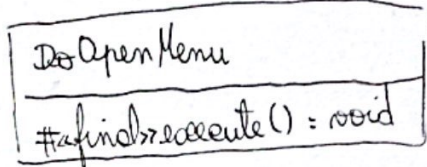 DoOpenMenu
#«final»execute() : void